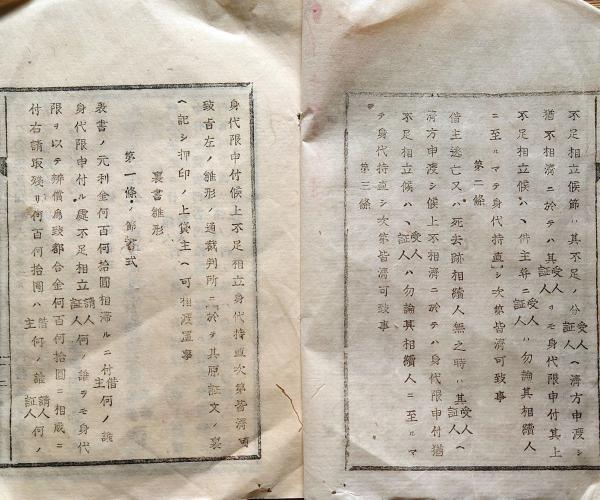 不足相立候節ハ其不足ノ分受人証人ヘ済方申渡シ
猶不相済ニ於テハ其受人証人ヲモ身代限申付其上
不足相立候ハヽ借主并ニ受人証人ハ勿論其相続人
ニ至ルマテ身代持直シ次第皆済可致事
第二條
借主逃亡又ハ死去跡相続人無之時ハ其受人証人ヘ
済方申渡シ候上不相済ニ於テハ身代限申付猶
不足相立候ハヽ受人証人ハ勿論其相続人ニ至ルマ
テ身代持直シ次第皆済可致事
第三條
身代限申付候上不足相立身代持直次第皆済可
致旨左ノ雛形ノ通裁判所ニ於テ其原証文ノ裏
ヘ記シ押印ノ上貸主ヘ可相渡置事
裏書雛形
第一條ノ節書式
表書ノ元利金何百何拾圓相滞ルニ付借主何ノ誰
身代限申付ル處不足相立請人証人何ノ誰ヲモ身代
限ヲ以テ辨償為致都合金何百何拾圓ニ相成ニ
付右請取残リ何百何拾圓ハ借主何ノ誰請人証人何ノ